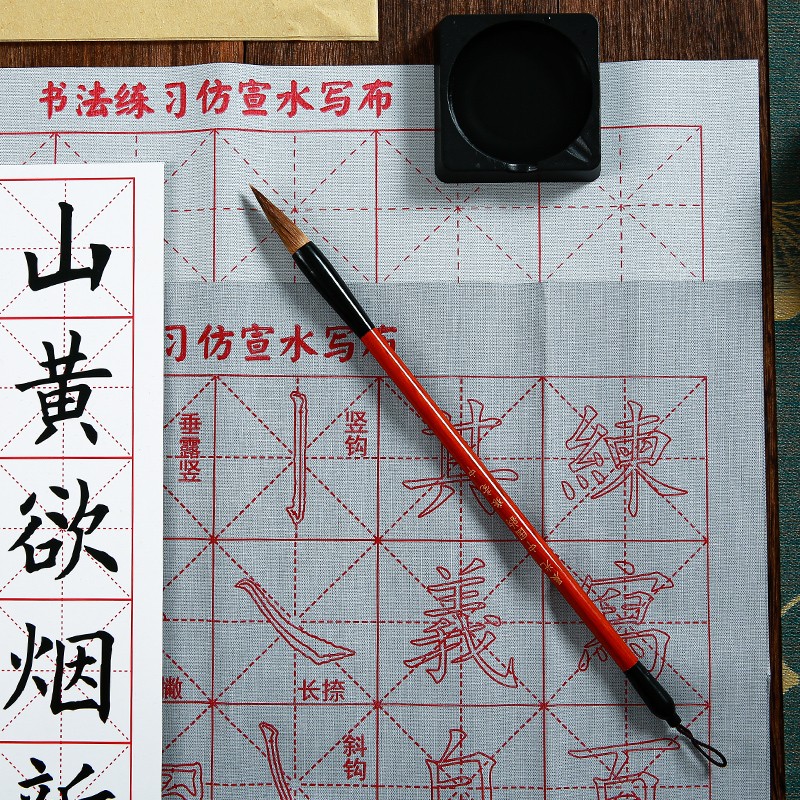 书法练习仿宣水写布
习仿宣水写布
山
黄
欲
烟
新
垂露竖
竖钩
其
練
長捺
義
斜钩
自
百